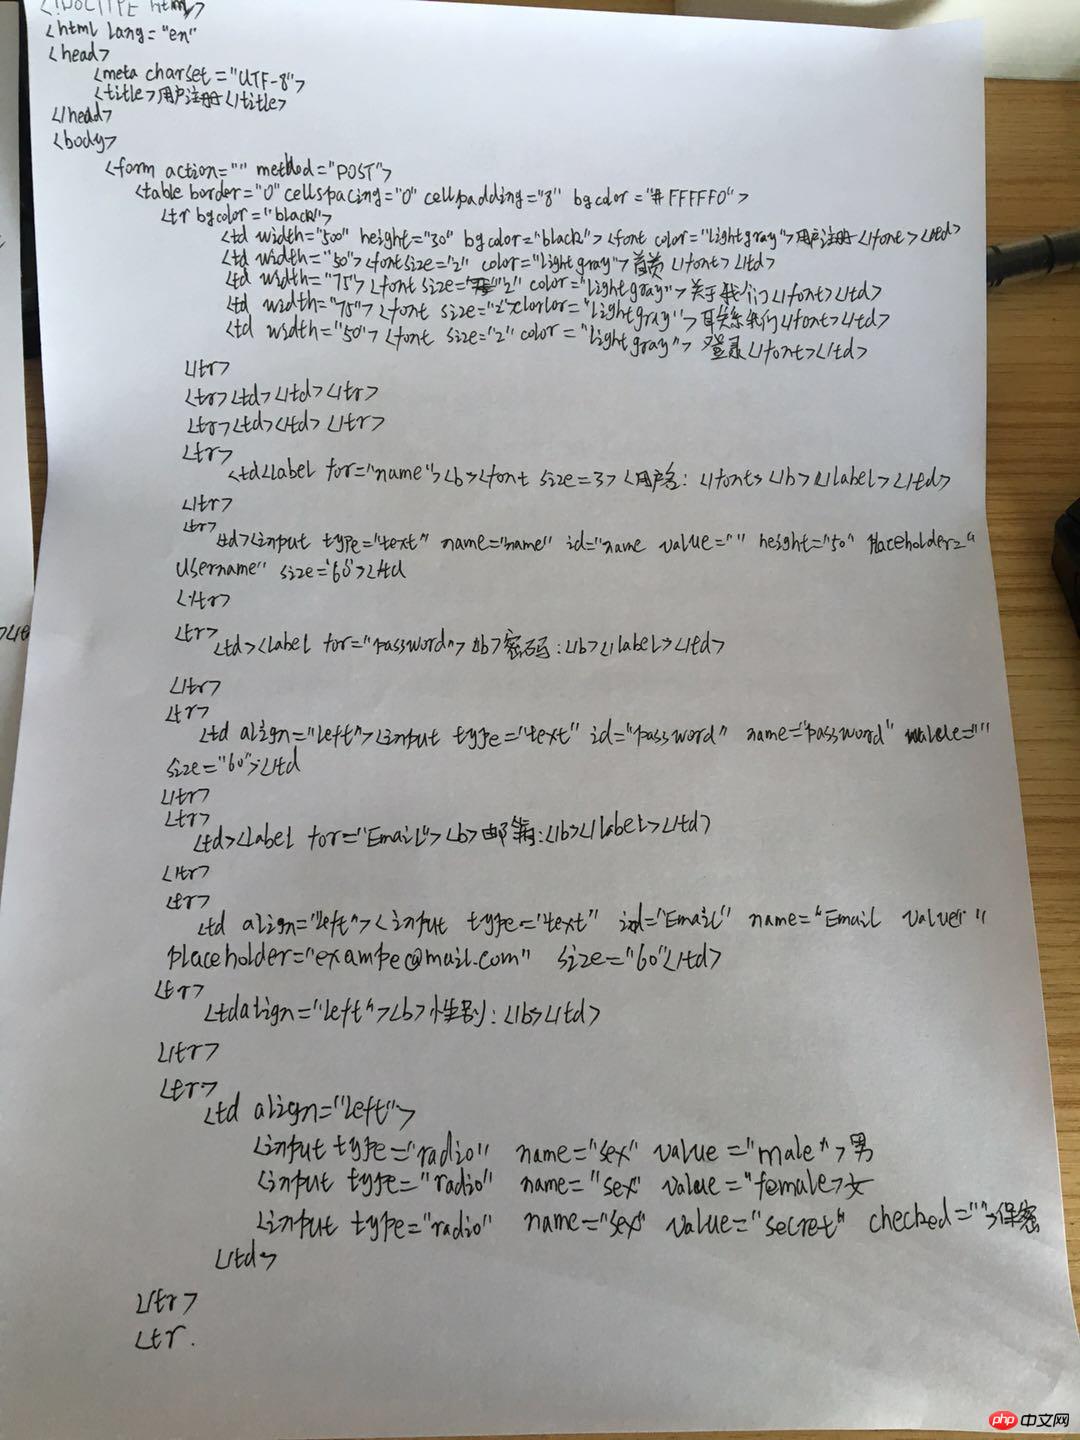 <!DOCTYPE html>
<html lang="en"
<head>
<meta charset="UTF-8">
<title>用户注册</title>
</head>
<body>
<form action="" method="POST">
<table border="0" cellspacing="0" cellpadding="8" bgcolor="#FFFFF0">
<tr bgcolor="black">
<td width="500" height="30" bgcolor="black"><font color="lightgray">用户注册</font></td>
<td width="50"><font size="2" color="lightgray">首页</font></td>
<td width="75"><font size="2" color="lightgray">关于我们</font></td>
<td width="75"><font size="2" clorlor="lightgray">联系我们</font></td>
<td width="50"><font size="2" color="lightgray">登录</font></td>
</tr>
<tr><td></td></tr>
<tr><td></td></tr>
<tr>
<td<label for="name"><b><font size=3><用户名:</font></b></label></td>
</tr>
<tr>
<td><input type="text" name="name" id="name value="" height="50" placeholder="
username" size="60"></td
</tr>
<tr>
<td><label for="password"><b>密码:</b></label></td>
</tr>
<tr>
<td align="left"><input type="text" id="password" name="password" ""
size="60"></td
</tr>
<tr>
<td><label for="Email"><b>邮箱:</b></label></td>
</tr>
<tr>
<td align="left"><input type="text" id="Email" name="Email value" "
placeholder="exampe@mail.com" size="60"</td>
<tr>
<tdalign="left"><b>性别:</b></td>
</tr>
<tr>
<td align="left">
<input type="radio" name="sex" value="male">男
<input type="radio" name="sex" value="female>女
<input type="radio" name="sex" value="secret" checked="">保密
</td>
</tr>
<tr.
php中文网